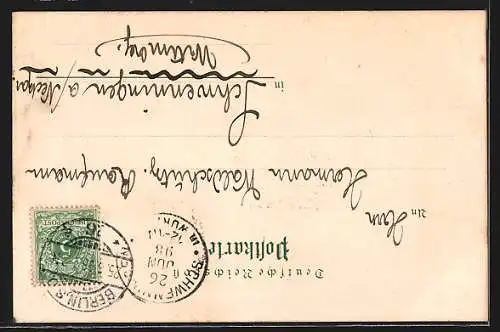 Deutsche Reichspost
Postkarte
An Herrn
Hermann Waldschütz, Kaufmann
in Schwenningen a/Neckar
Württemberg.
SCHWENNINGEN
26
JUN
98
12-1N
BERLIN